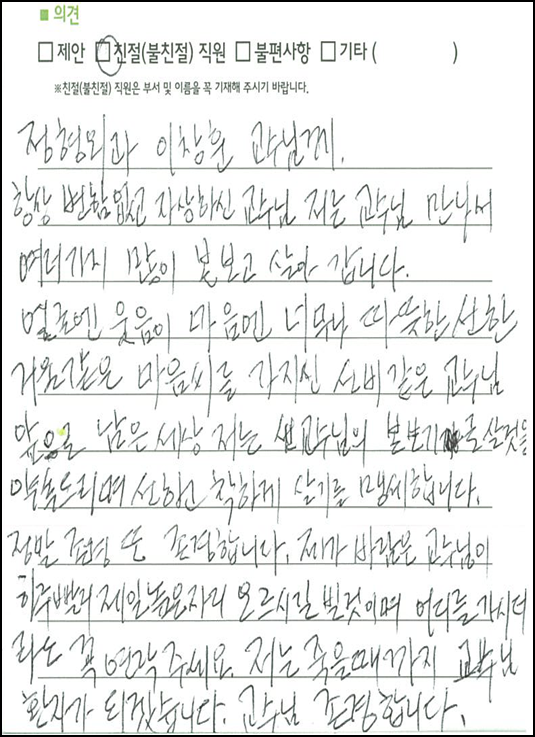 ■ 의견
□ 제안 □ 친절(불친절) 직원 □ 불편사항 □ 기타 ( )
※친절(불친절) 직원은 부서 및 이름을 꼭 기재해 주시기 바랍니다.
정형외과 이창훈 교수님께.
항상 변함 없고 자상하신 교수님 저는 교수님 만나서
여러가지 많이 봇보고 살아 갑니다.
얼굴엔 웃음이 마음엔 너무나 따뜻한 선한
거울같은 마음씨를 가지신 선비같은 교수님
앞으로 남은 세상 저는 교수님의 본보기로 살것을
약속드리며 선하고 착하게 살기를 맹세합니다.
정말 존경 또 존경합니다. 제가 바람은 교수님이
하루빨리 제일높은자리 오르시길 빌것이며 어디를 가시더
라도 꼭 연락주세요. 저는 죽을때까지 교수님
환자가 되겠습니다. 교수님 존경합니다.